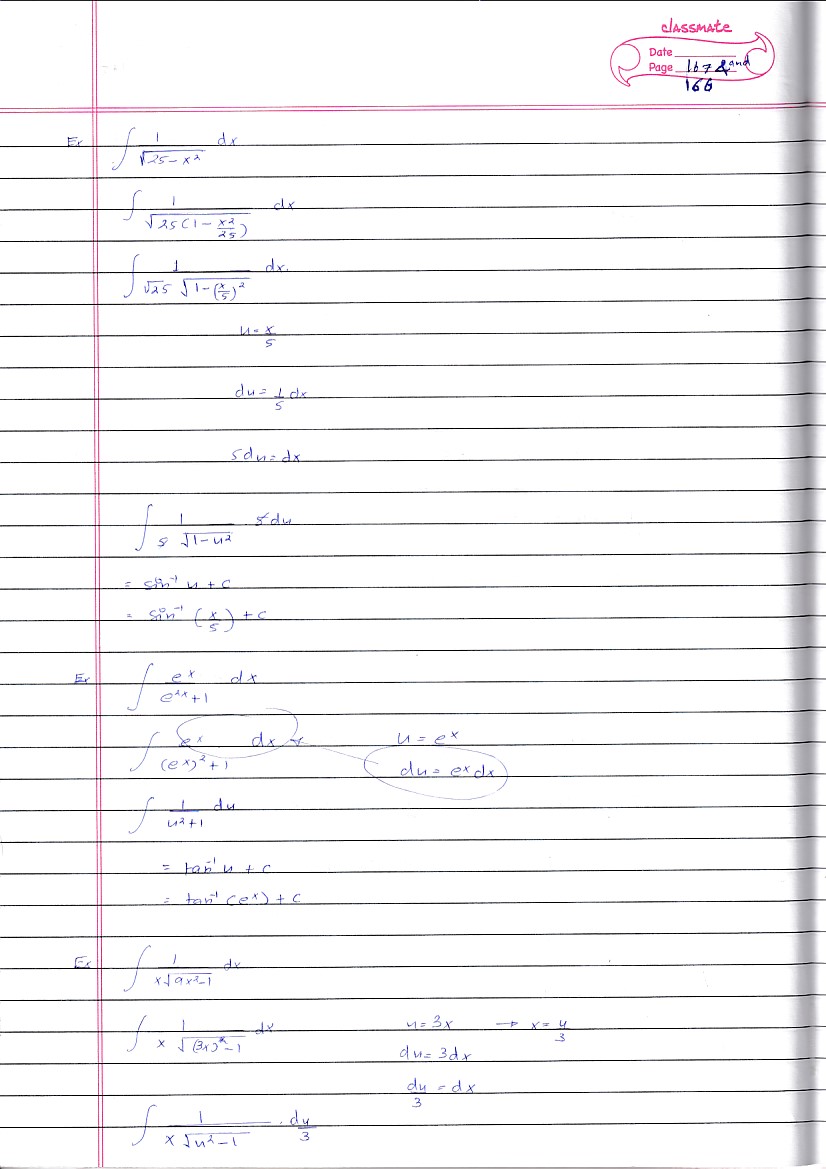 classmate
Date
Page 167 & and
166
Ex ∫ 1/√25-x² dx
∫ 1/√25(1-x²/25) dx
∫ 1/√25 √1-(x/5)² dx.
u = x/5
du = 1/5 dx
5du = dx
∫ 1/5 √1-u² 5du
= sin⁻¹ u + c
= sin⁻¹ (x/5) + c
Ex ∫ eˣ/e²ˣ+1 dx
∫ eˣ/(eˣ)²+1 dx u = eˣ
du = eˣdx
∫ 1/u²+1 du
= tan⁻¹ u + c
= tan⁻¹ (eˣ) + c
Ex ∫ 1/x√9x²-1 dx
∫ 1/x √(3x)²-1 dx u = 3x → x = u/3
du = 3dx
du/3 = dx
∫ 1/x √u²-1 . du/3